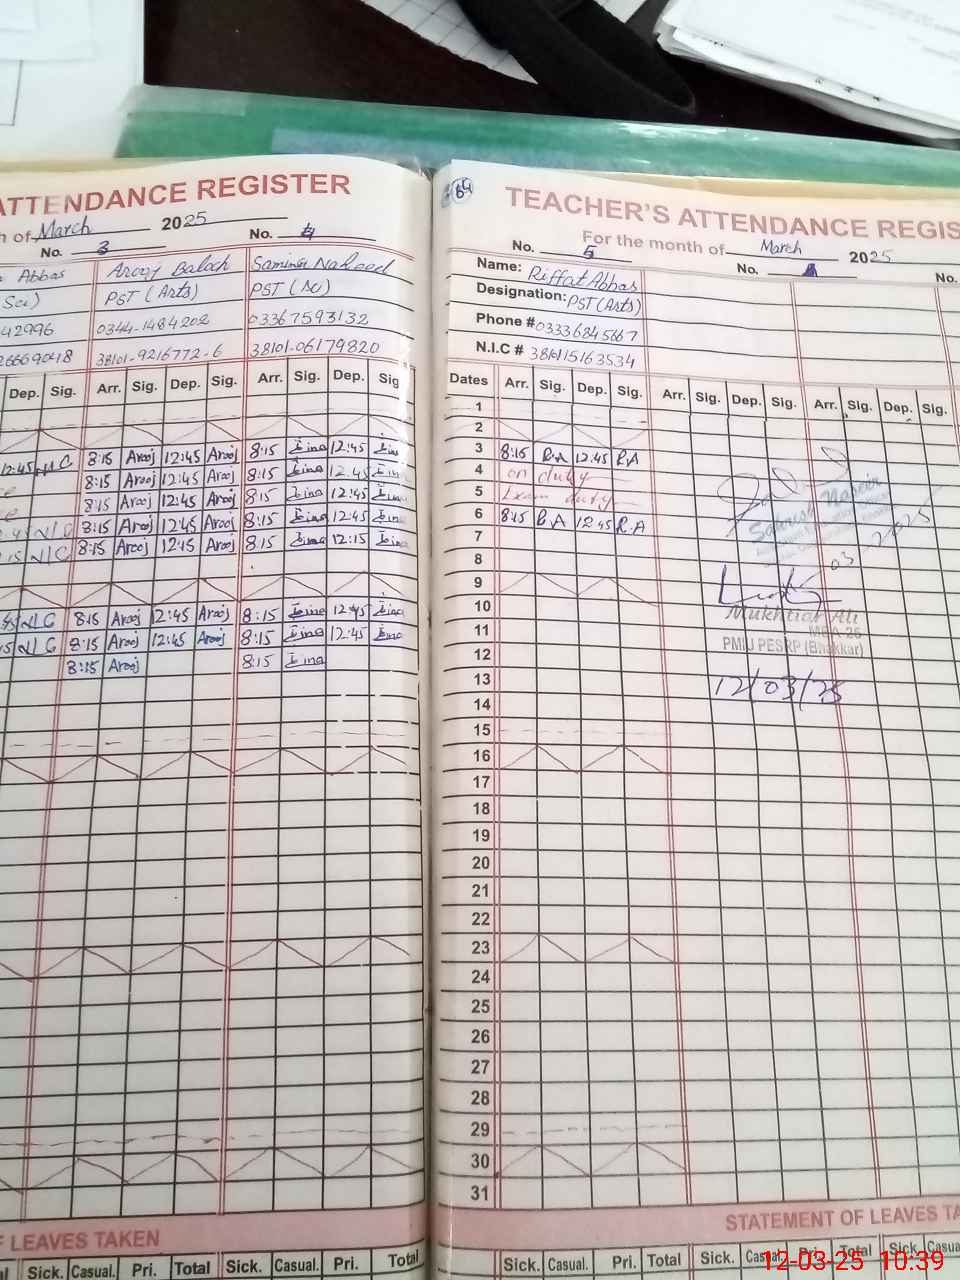 ATTENDANCE REGISTER
of March 2025
No. 3 No. 4
Abbas Arooj Baloch Samina Naheed
Sci) PST (Arts) PST (Sci)
42996 0344-1484202 03367593132
26669048 38101-9216772-6 38101-06179820
Dep. Sig. Arr. Sig. Dep. Sig. Arr. Sig. Dep. Sig
12:45 8:15 Arooj 12:45 Arooj 8:15 12:45
8:15 Arooj 12:45 Arooj 8:15 12:45
8:15 Arooj 12:45 Arooj 8:15 12:45
8:15 Arooj 12:45 Arooj 8:15 12:45
8:15 Arooj 12:15 Arooj 8:15 12:15
8:15 Arooj 12:45 Arooj 8:15 12:45
8:15 Arooj 12:45 Arooj 8:15 12:45
8:15 Arooj 8:15
OF LEAVES TAKEN
Sick. Casual. Pri. Total Sick. Casual. Pri. Total
64
TEACHER'S ATTENDANCE REGIS
For the month of March 2025
No. 5 No. No.
Name: Riffat Abbas
Designation: PST (Arts)
Phone # 03336845667
N.I.C #
Dates Arr. Sig. Dep. Sig. Arr. Sig. Dep. Sig. Arr. Sig. Dep. Sig.
1
2
3 8:15 R.A 12:45 R.A
4 on duty
5 Exam duty
6 8:15 R.A 12:45 R.A
7
8
9
10
11
12
13
14
15
16
17
18
19
20
21
22
23
24
25
26
27
28
29
30
31
03 2025
Mukhtiar Ali
MEA-26
PMIU PESRP (Bhakkar)
12/03/25
STATEMENT OF LEAVES TA
Sick. Casual. Pri. Total Sick. Casual. Pri. Total Sick. Casua
12-03-25 10:39